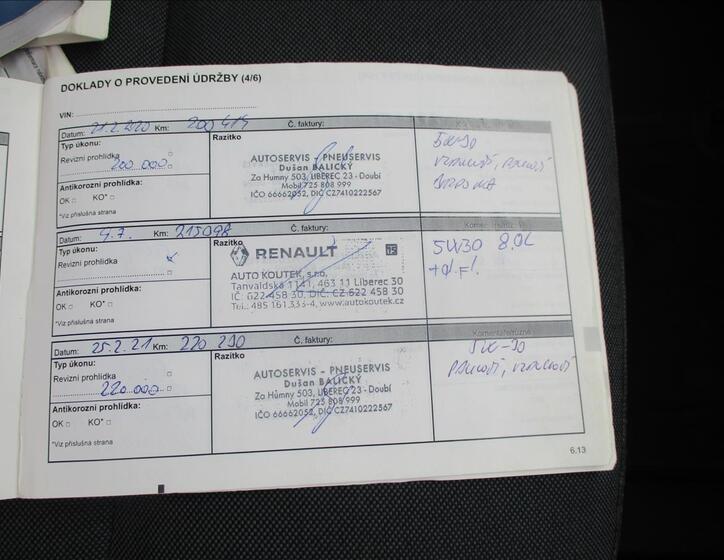 DOKLADY O PROVEDENÍ ÚDRŽBY (4/6)
VIN:
Datum: 21.2.2020 Km: 200 414 Č. faktury:
Typ úkonu: Razítko 5W-30
Revizní prohlídka
200 000
AUTOSERVIS - PNEUSERVIS
Dušan BALICKÝ
Za Humny 503, LIBEREC 23 - Doubí
Mobil 725 808 999
IČO 66662052, DIČ CZ7410222567
Antikorozní prohlídka:
OK KO*
*Viz příslušná strana
Datum: 4.7. Km: 215098 Č. faktury:
Typ úkonu: Razítko 5W30 8,0L
Revizní prohlídka
RENAULT
AUTO KOUTEK, s.r.o.
Tanvaldská 1141, 463 11 Liberec 30
IČ: 622 458 30, DIČ: CZ 622 458 30
Tel.: 485 161 333-4, www.autokoutek.cz
Antikorozní prohlídka:
OK KO*
*Viz příslušná strana
Datum: 25.2.21 Km: 220 290 Č. faktury: Komentář/různé
Typ úkonu: Razítko 5W-30
Revizní prohlídka
220 000
AUTOSERVIS - PNEUSERVIS
Dušan BALICKÝ
Za Humny 503, LIBEREC 23 - Doubí
Mobil 725 808 999
IČO 66662052, DIČ CZ7410222567
Antikorozní prohlídka:
OK KO*
*Viz příslušná strana
6.13